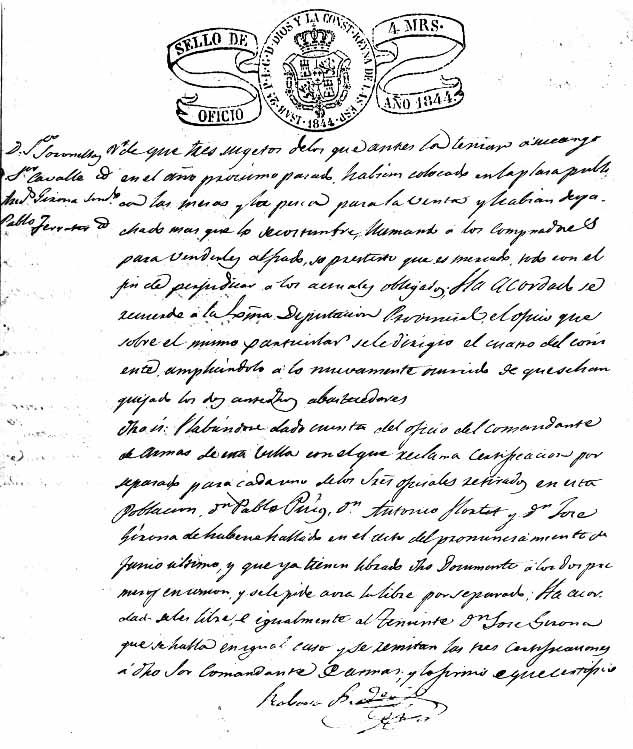 SELLO DE OFICIO
ISAB. 2ª P. L. G. D. DIOS Y LA CONST. REYNA DE LAS ESP. 1844.
4 MRS. AÑO 1844.
D. Jph Soronellas
Jph Cavallé
And. Girona Sindco
Pablo Ferrater
Vª de que tres sugetos de los que antes la tenian a su cargo
en el año procsimo pasado, habian colocado en la plasa publi
ca las mesas y la pesca para la venta y habian despa
chado mas que lo de costumbre, llamando a los compradores
para venderles al fiado, so pretesto que es mercado, todo con el
fin de perjudicar a los actuales obligados, Ha acordado se
recuerde á la Exma. Diputacion Provincial, el oficio que
sobre el mismo particular se le dirigio el cuatro del corri
ente, ampliandolo á lo nuevamente ocurrido de que se han
quejado los dos antedhos abastecedores
Otro si: Habiendose dado cuenta del oficio del comandante
de Armas de esta Villa con el que reclama certificacion por
separado para cada uno de los tres oficiales retirados en esta
Poblacion, Dn Pablo Puig, Dn Antonio Flortet y Dn Jose
Girona de haberse hallado en el acto del pronunciamiento de
Junio ultimo, y que ya tienen librado dho Documento á los dos pri
meros en union, y se le pide aora lo libre por separado, Ha acor
dado se les libre, é igualmente al Teniente Dn Jose Girona
que se halla en igual caso y se remitan las tres certificaciones
á dho Sor Comandante de armas, y lo firmó de que certifico